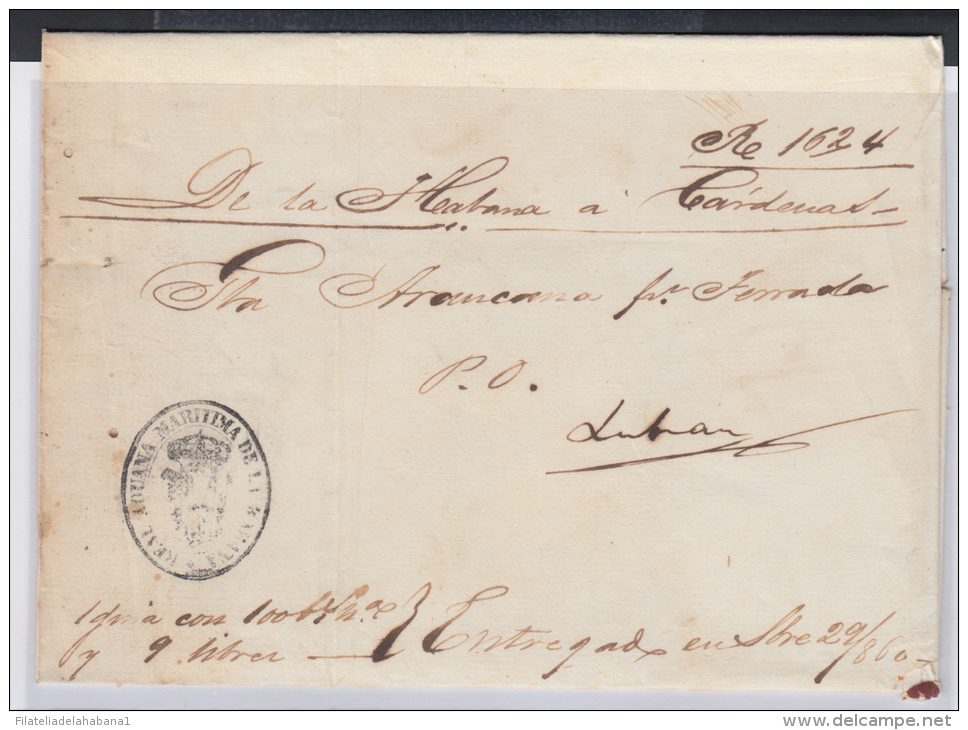 Re 1624
De la Habana á Cárdenas
Gta Araucana pn. Ferrada
P. O.
REAL ADUANA MARITIMA DE LA HABANA
1 guia con 100
y 9 libres
Entregado en Sbre 29/860
Filateliadelahabana1
www.delcampe.net